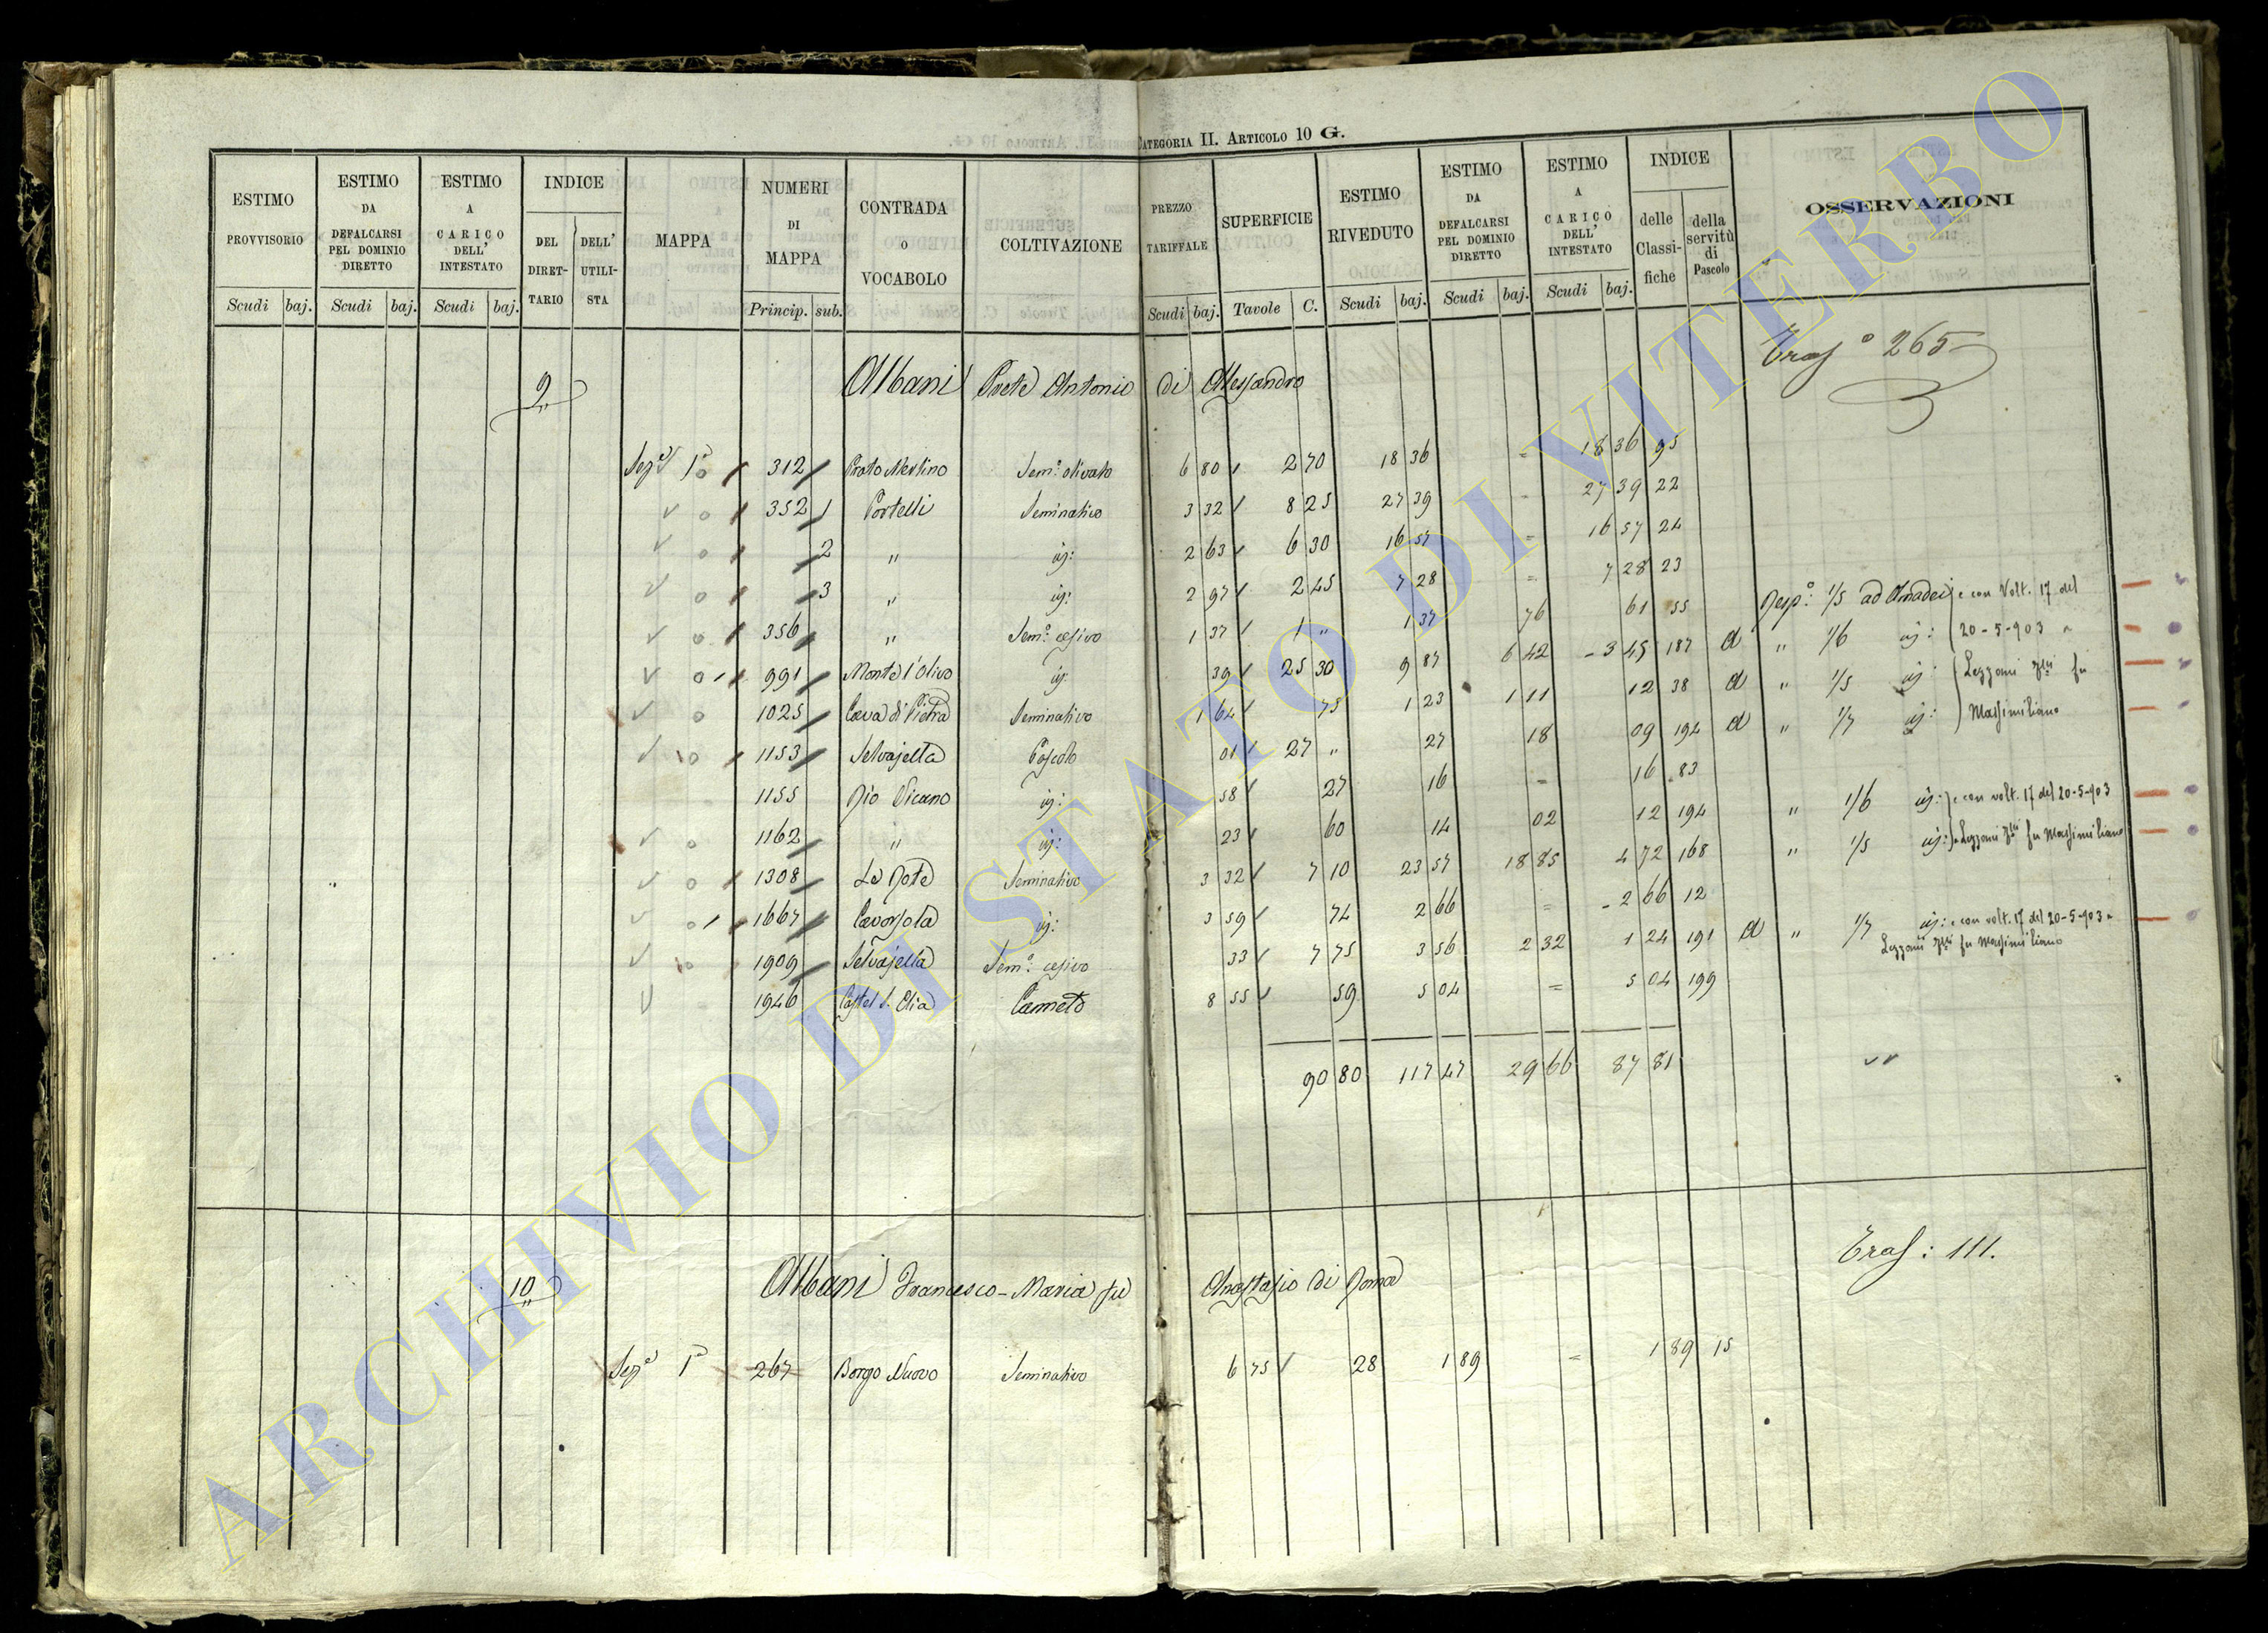 CATEGORIA II. ARTICOLO 10 G.
ESTIMO PROVVISORIO Scudi baj. ESTIMO DA DEFALCARSI PEL DOMINIO DIRETTO Scudi baj. ESTIMO A CARICO DELL' INTESTATO Scudi baj. INDICE DEL DIRETTARIO DELL' UTILISTA MAPPA NUMERI DI MAPPA Princip. sub. CONTRADA O VOCABOLO COLTIVAZIONE PREZZO TARIFFALE Scudi baj. SUPERFICIE Tavole C. ESTIMO RIVEDUTO Scudi baj. ESTIMO DA DEFALCARSI PEL DOMINIO DIRETTO Scudi baj. ESTIMO A CARICO DELL' INTESTATO Scudi baj. INDICE delle Classifiche della servitù di Pascolo OSSERVAZIONI
Trasf.o 265
9 Albani Prete Antonio di Alessandro
Sez.e 1a 312 Prato Merlino Sem.o olivato 6 80 2 70 18 36 = 18 36 95
352 1 Portelli Seminativo 3 32 8 25 27 39 - 27 39 22
2 " id: 2 63 6 30 16 57 = 16 57 24
3 " id: 2 97 2 45 7 28 = 7 28 23
356 " Sem.o cesivo 1 37 1 " 1 37 76 61 55 Risp.o 1/5 ad Amadei e con Volt. 17 del
991 Monte l'Olivo id 39 25 30 9 87 6 42 3 45 187 a " 1/6 id: 20-5-903 a
1025 Cava di Pietra Seminativo 1 64 75 1 23 1 11 12 38 a " 1/5 id: Lezzani fu
1153 Selvajetta Pascolo 01 27 " 27 18 09 194 a " 1/7 id: Massimiliano
1155 Rio Vicano id: 58 27 16 = 16 83
1162 " id: 23 60 14 02 12 194 " 1/6 id: e con volt. 17 del 20-5-903
1308 Le Rote Seminativo 3 32 7 10 23 57 18 85 4 72 168 " 1/5 id: a Lezzani fu Massimiliano
1667 id: 3 59 74 2 66 = 2 66 12
1909 Selvajetta Sem.o cesivo 33 7 75 3 56 2 32 1 24 191 a " 1/7 id: e con volt. 17 del 20-5-903 a
Lezzani fu Massimiliano
1946 Castel S. Elia Canneto 8 55 59 5 04 = 5 04 199
90 80 117 47 29 66 87 81
Trasf: 111.
10 Albani Francesco-Maria fu Anastasio di Roma
Sez.e 1a 267 Borgo Nuovo Seminativo 6 75 28 1 89 = 1 89 15
ARCHIVIO DI STATO DI VITERBO